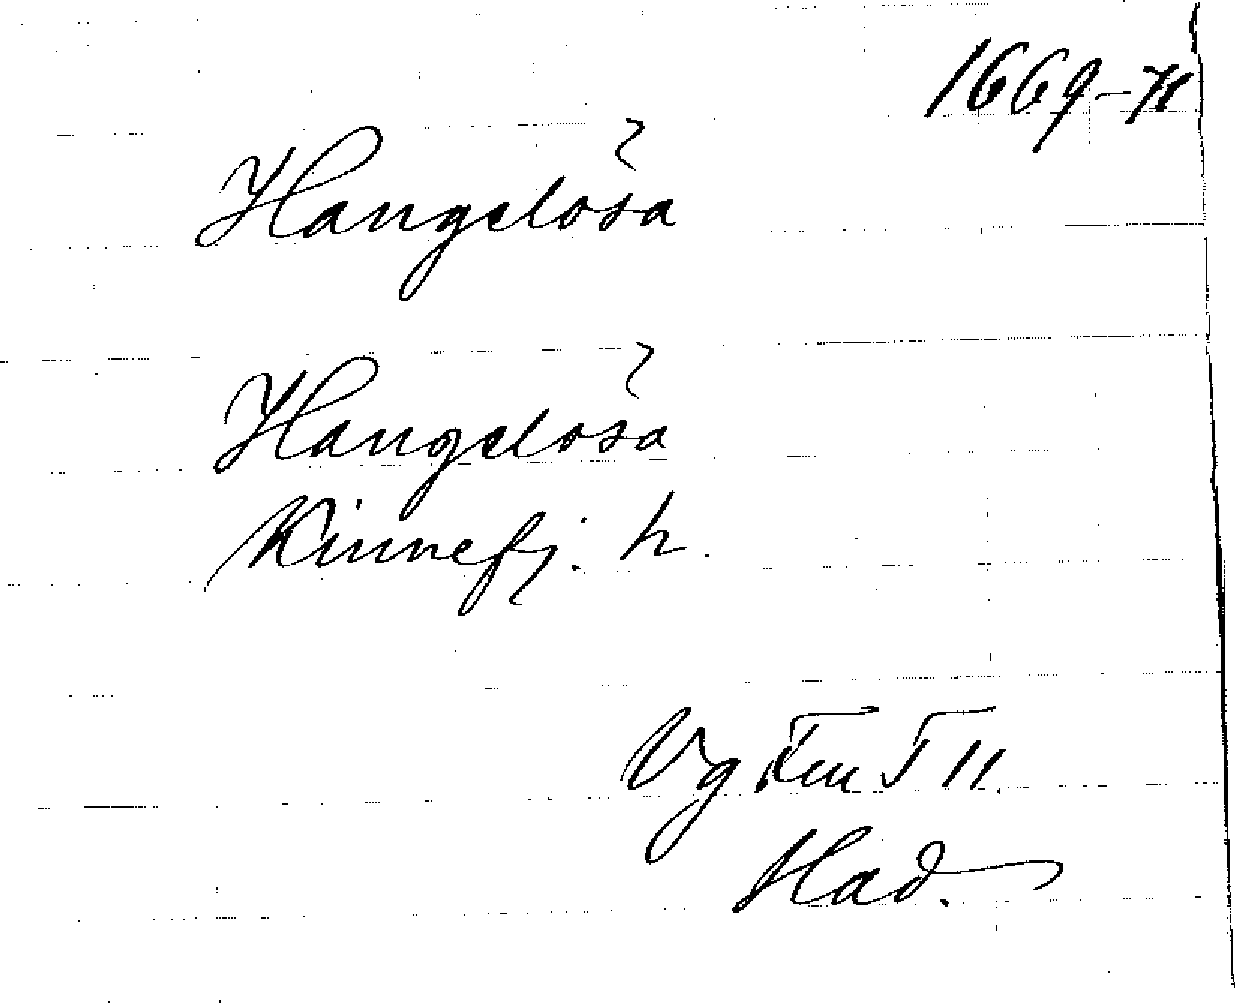 1669-71
Hangelösa
Hangelösa
Kinnefj. h.
Vg 11
Had.